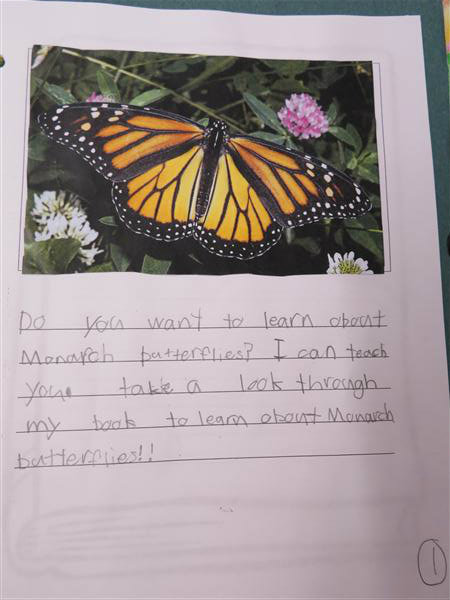 Do you want to learn about
Monarch butterflies? I can teach
you. take a look through
my book to learn about Monarch
butterflies!!
1